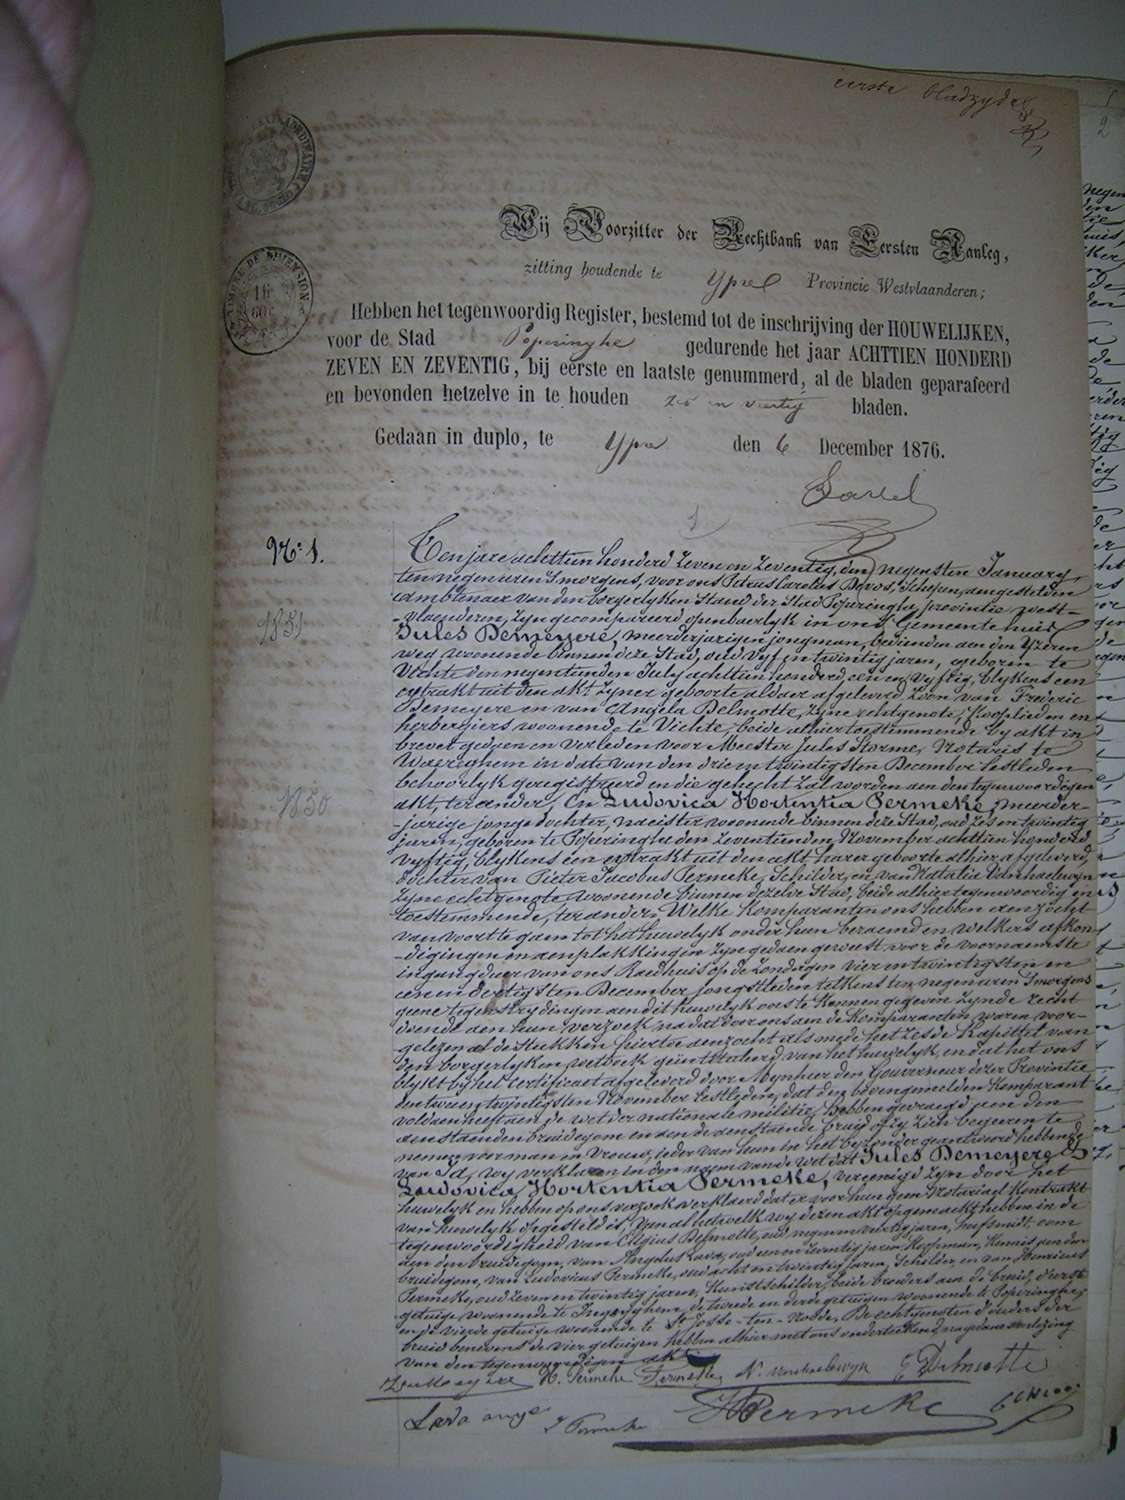 eerste bladzyde
Wij Voorzitter der Rechtbank van Eersten Aanleg,
zitting houdende te Yprel Provincie Westvlaanderen;
Hebben het tegenwoordig Register, bestemd tot de inschrijving der HOUWELIJKEN,
voor de Stad Poperinghe gedurende het jaar ACHTTIEN HONDERD
ZEVEN EN ZEVENTIG, bij eerste en laatste genummerd, al de bladen geparafeerd
en bevonden hetzelve in te houden zes en veertig bladen.
Gedaan in duplo, te Ypre den 6 December 1876.
Nr. 1.
Ten jare achttien honderd zeven en zeventig, den negensten January,
ten negen uren 's morgens, voor ons Petrus Carolus Devos, Schepen, aengestelden
ambtenaer van den borgerlyken Stand der Stad Poperinghe, provintie west-
-vlaenderen, zyn gecompareerd openbaerlyk in ons Gemeentehuis
Jules Demeyere, meerderjarigen jongman, bediende aen den Yzeren
weg, woonende binnen deze Stad, oud vyf in twintig jaren, geboren te
1851
Vichte den negenstunden July achttien honderd een en vyftig, blykens een
extrakt uit den akt zyner geboorte aldaer afgeleverd, Zoon van Frederic
Demeyere en van Angela Delmotte, zyne echtgenote, Kooplieden en
herbergiers woonende te Vichte, beide alhier toestemmende by akt in
brevet gedaen en verleden voor Meester Jules Storme, Notaris te
Waereghem in date van den drie en twintigsten December lestleden
behoorlyk geregistreerd en die gehecht zal worden aen den tegenwoordigen
akt, ter eender, En Ludovica Hortentia Permeke, meerder-
1850
-jarige jonge dochter, naeister, woonende binnen deze Stad, oud zes en twintig
jaren, geboren te Poperinghe den zeventienden November achttien honderd
vyftig, blykens een extrakt uit den akt harer geboorte alhier afgeleverd,
dochter van Pieter Jacobus Permeke, Schilder, en van Natalie Vanhaelewyn
zyne echtgenote woonende binnen dezelve Stad, beide alhier tegenwoordig en
toestemmende, ter andere, Welke Komparanten ons hebben aenzocht
van voort te gaen tot het huwelyk onder hun beraemd en welkers afkon-
-digingen en aenplakkingen zyn gedaen geweest voor de voornaemste
ingangdeur van ons Raedhuis op de Zondagen vier en twintigsten en
een en dertigsten December jongstleden telkens ten negen uren 's morgens
geene tegenstrydingen aen dit huwelyk ons te kennen gegeven zynde recht
doende aen hun verzoek na dat door ons aen de Komparanten waren voor-
-gelezen al de stukken hiertoe aenzocht als mede het zesde Kapittel van
den borgerlyken wetboek geïntituleerd van het huwelyk, en dat het ons
blykt by het Certificaet afgeleverd door Mynheer den Gouverneur dezer Provintie
den tweeen twintigsten November lestleden, dat den bovengemelden Komparant
voldaen heeft aen de wet der nationale militie, Hebben gevraegd aen den
aenstaenden bruidegom en aen de aenstaende bruid of zy zich begeeren te
nemen voor man en vrouw, ieder van hun in het byzonder geantwoord hebbende
van Ja, wy verklaren in den naem van de wet dat Jules Demeyere &
Ludovica Hortentia Permeke, vereenigd zyn door het
huwelyk en hebben op ons verzoek verklaerd dat er voor hun geen Notariael Kontrakt
van huwelyk opgesteld is, Van al hetwelk wy dezen akt opgemaekt hebben in de
tegenwoordigheid van Eligius Delmotte, oud negen en veertig jaren, hoefsmidt, oom
aen den bruidegom, van Angelus Lava, oud een en twintig jaren, Koopman, Kennis aen den
bruidegom, van Ludovicus Permeke, oud acht en twintig jaren, Schilder en van Henricus
Permeke, oud zeven en twintig jaren, Kunstschilder, beide broeders aen de bruid, d'eerste
getuige woonende te Ingoyghem, de tweede en derde getuigen woonende te Poperinghe,
en de vierde getuige woonende te St Josse-ten-Noode, De echtgenoten d'ouders der
bruid benevens de vier getuigen hebben alhier met ons onderteekend, na gedane voorlezing
van den tegenwoordigen akt
Demeyere H. Permeke Permeke N. Vanhaelewyn E Delmotte
Lava ange L Permeke H Permeke